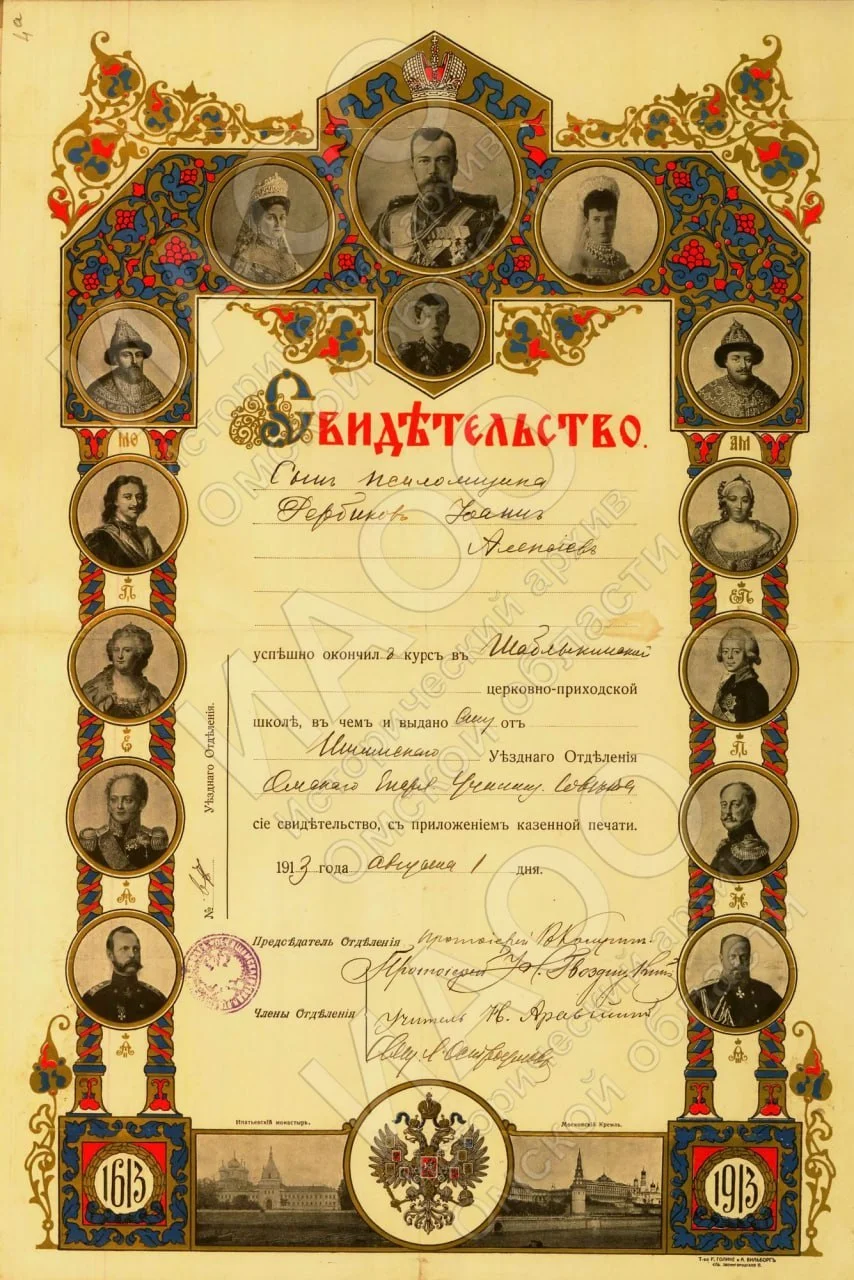 4а
Свидѣтельство.
Сынъ псаломщика
Іоаннъ
Алексѣевъ
успѣшно окончил курсъ въ Шаблыкинской
церковно-приходской
школѣ, въ чемъ и выдано ему отъ
Ишимскаго Уѣзднаго Отдѣленія
Омскаго Епарх. Училищн. Совѣта
сіе свидѣтельство, съ приложеніемъ казенной печати.
1913 года августа 1 дня.
№ Уѣзднаго Отдѣленія.
Предсѣдатель Отдѣленія протоіерей
Протоіерей
Члены Отдѣленія
Учитель Н.
МѲ
АМ
П
ЕП
Е
П
А
Н
А
А
Ипатьевскій монастырь.
Московскій Кремль.
1613
1913
Т-во Р. Голике и А. Вильборгъ
Спб. Звенигородская 11.
ИАОО
Исторический архив
Омской области